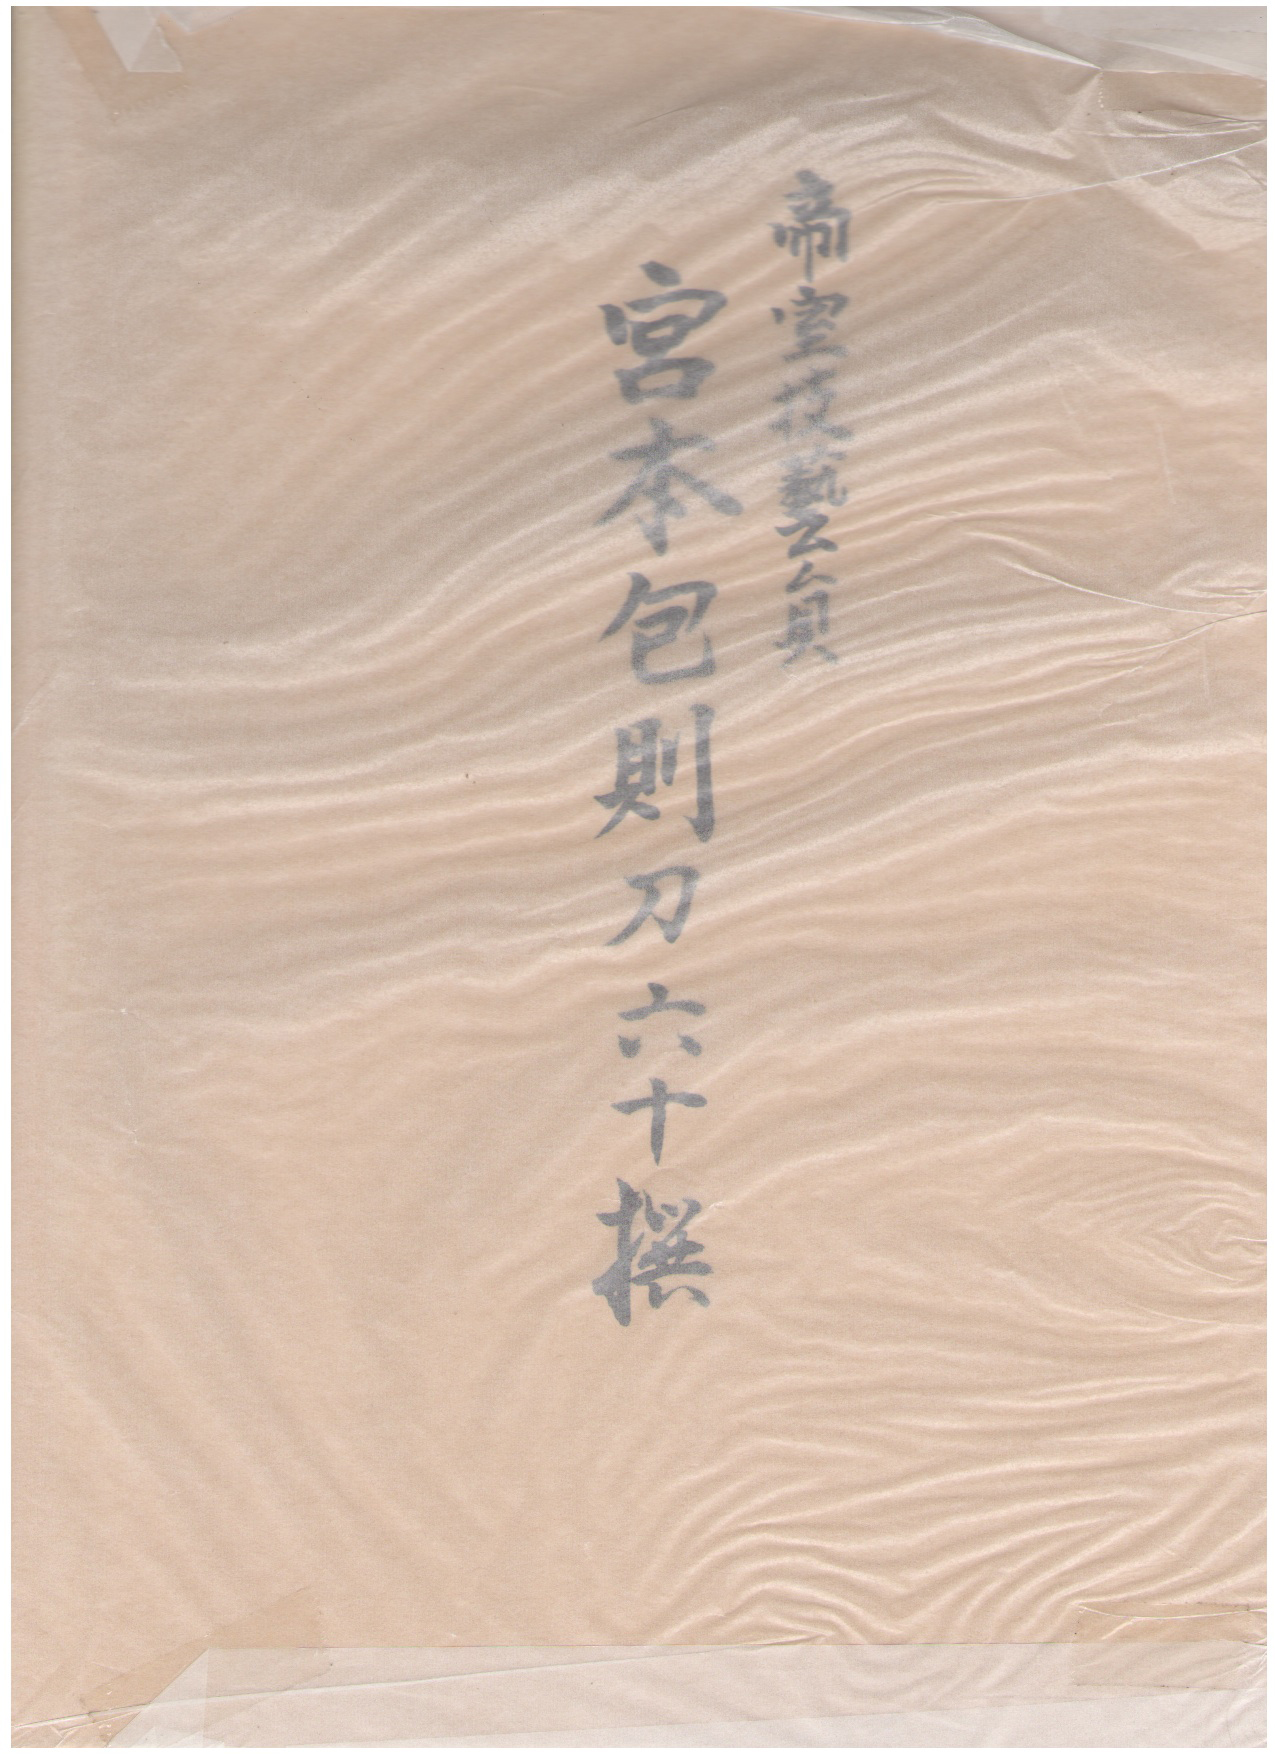 帝室技藝員
宮本包則刀六十撰